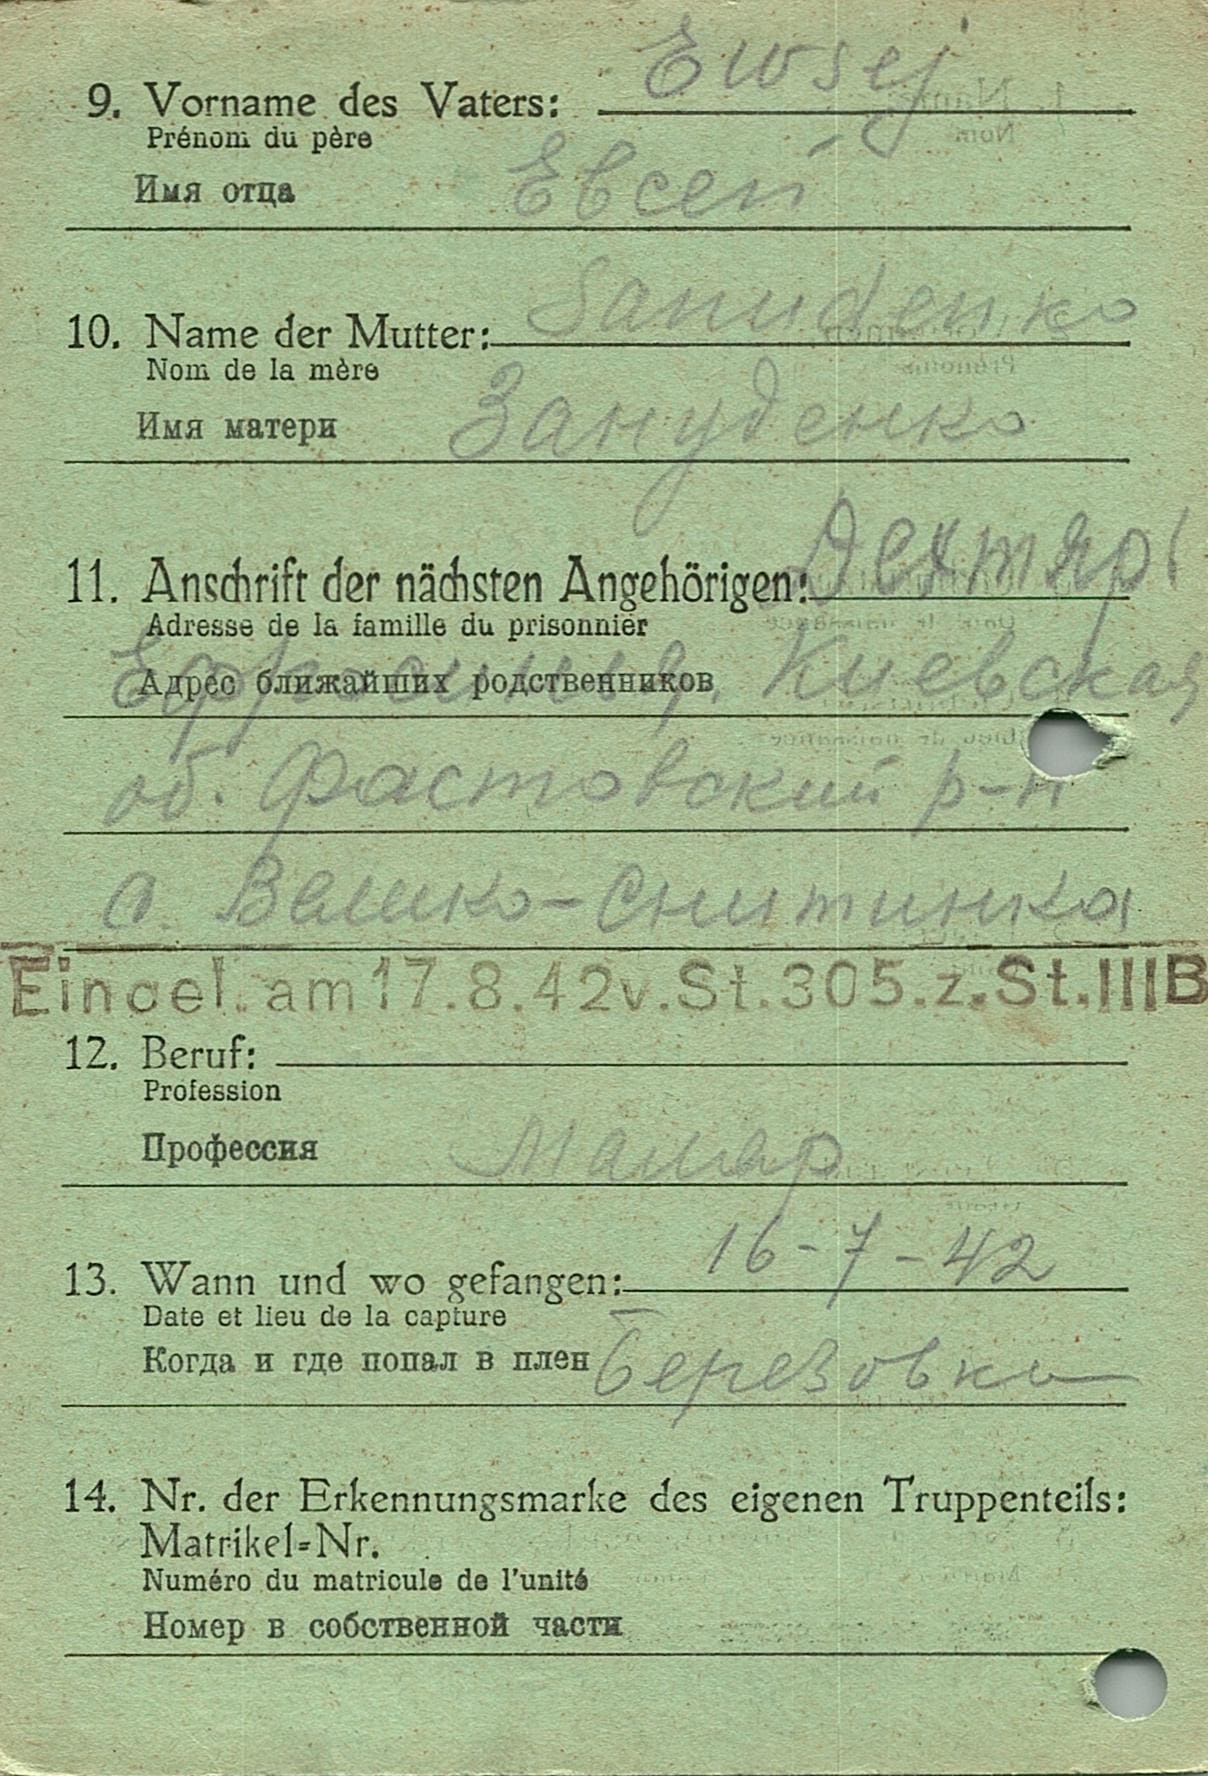 Ewsej
9. Vorname des Vaters:
Prénom du père
Имя отца Евсей
Sanudenko
10. Name der Mutter:
Nom de la mère
Имя матери Зануденко
11. Anschrift der nächsten Angehörigen: Дехтяр
Adresse de la famille du prisonnier
Адрес ближайших родственников
Ефросинья, Киевская
об. Фастовский р-н
с. Велико-Снитинка
Eingel. am 17.8.42 v. St. 305. z. St. III B
12. Beruf:
Profession
Профессия Маляр
13. Wann und wo gefangen: 16-7-42
Date et lieu de la capture
Когда и где попал в плен Березовка
14. Nr. der Erkennungsmarke des eigenen Truppenteils:
Matrikel=Nr.
Numéro du matricule de l'unité
Номер в собственной части